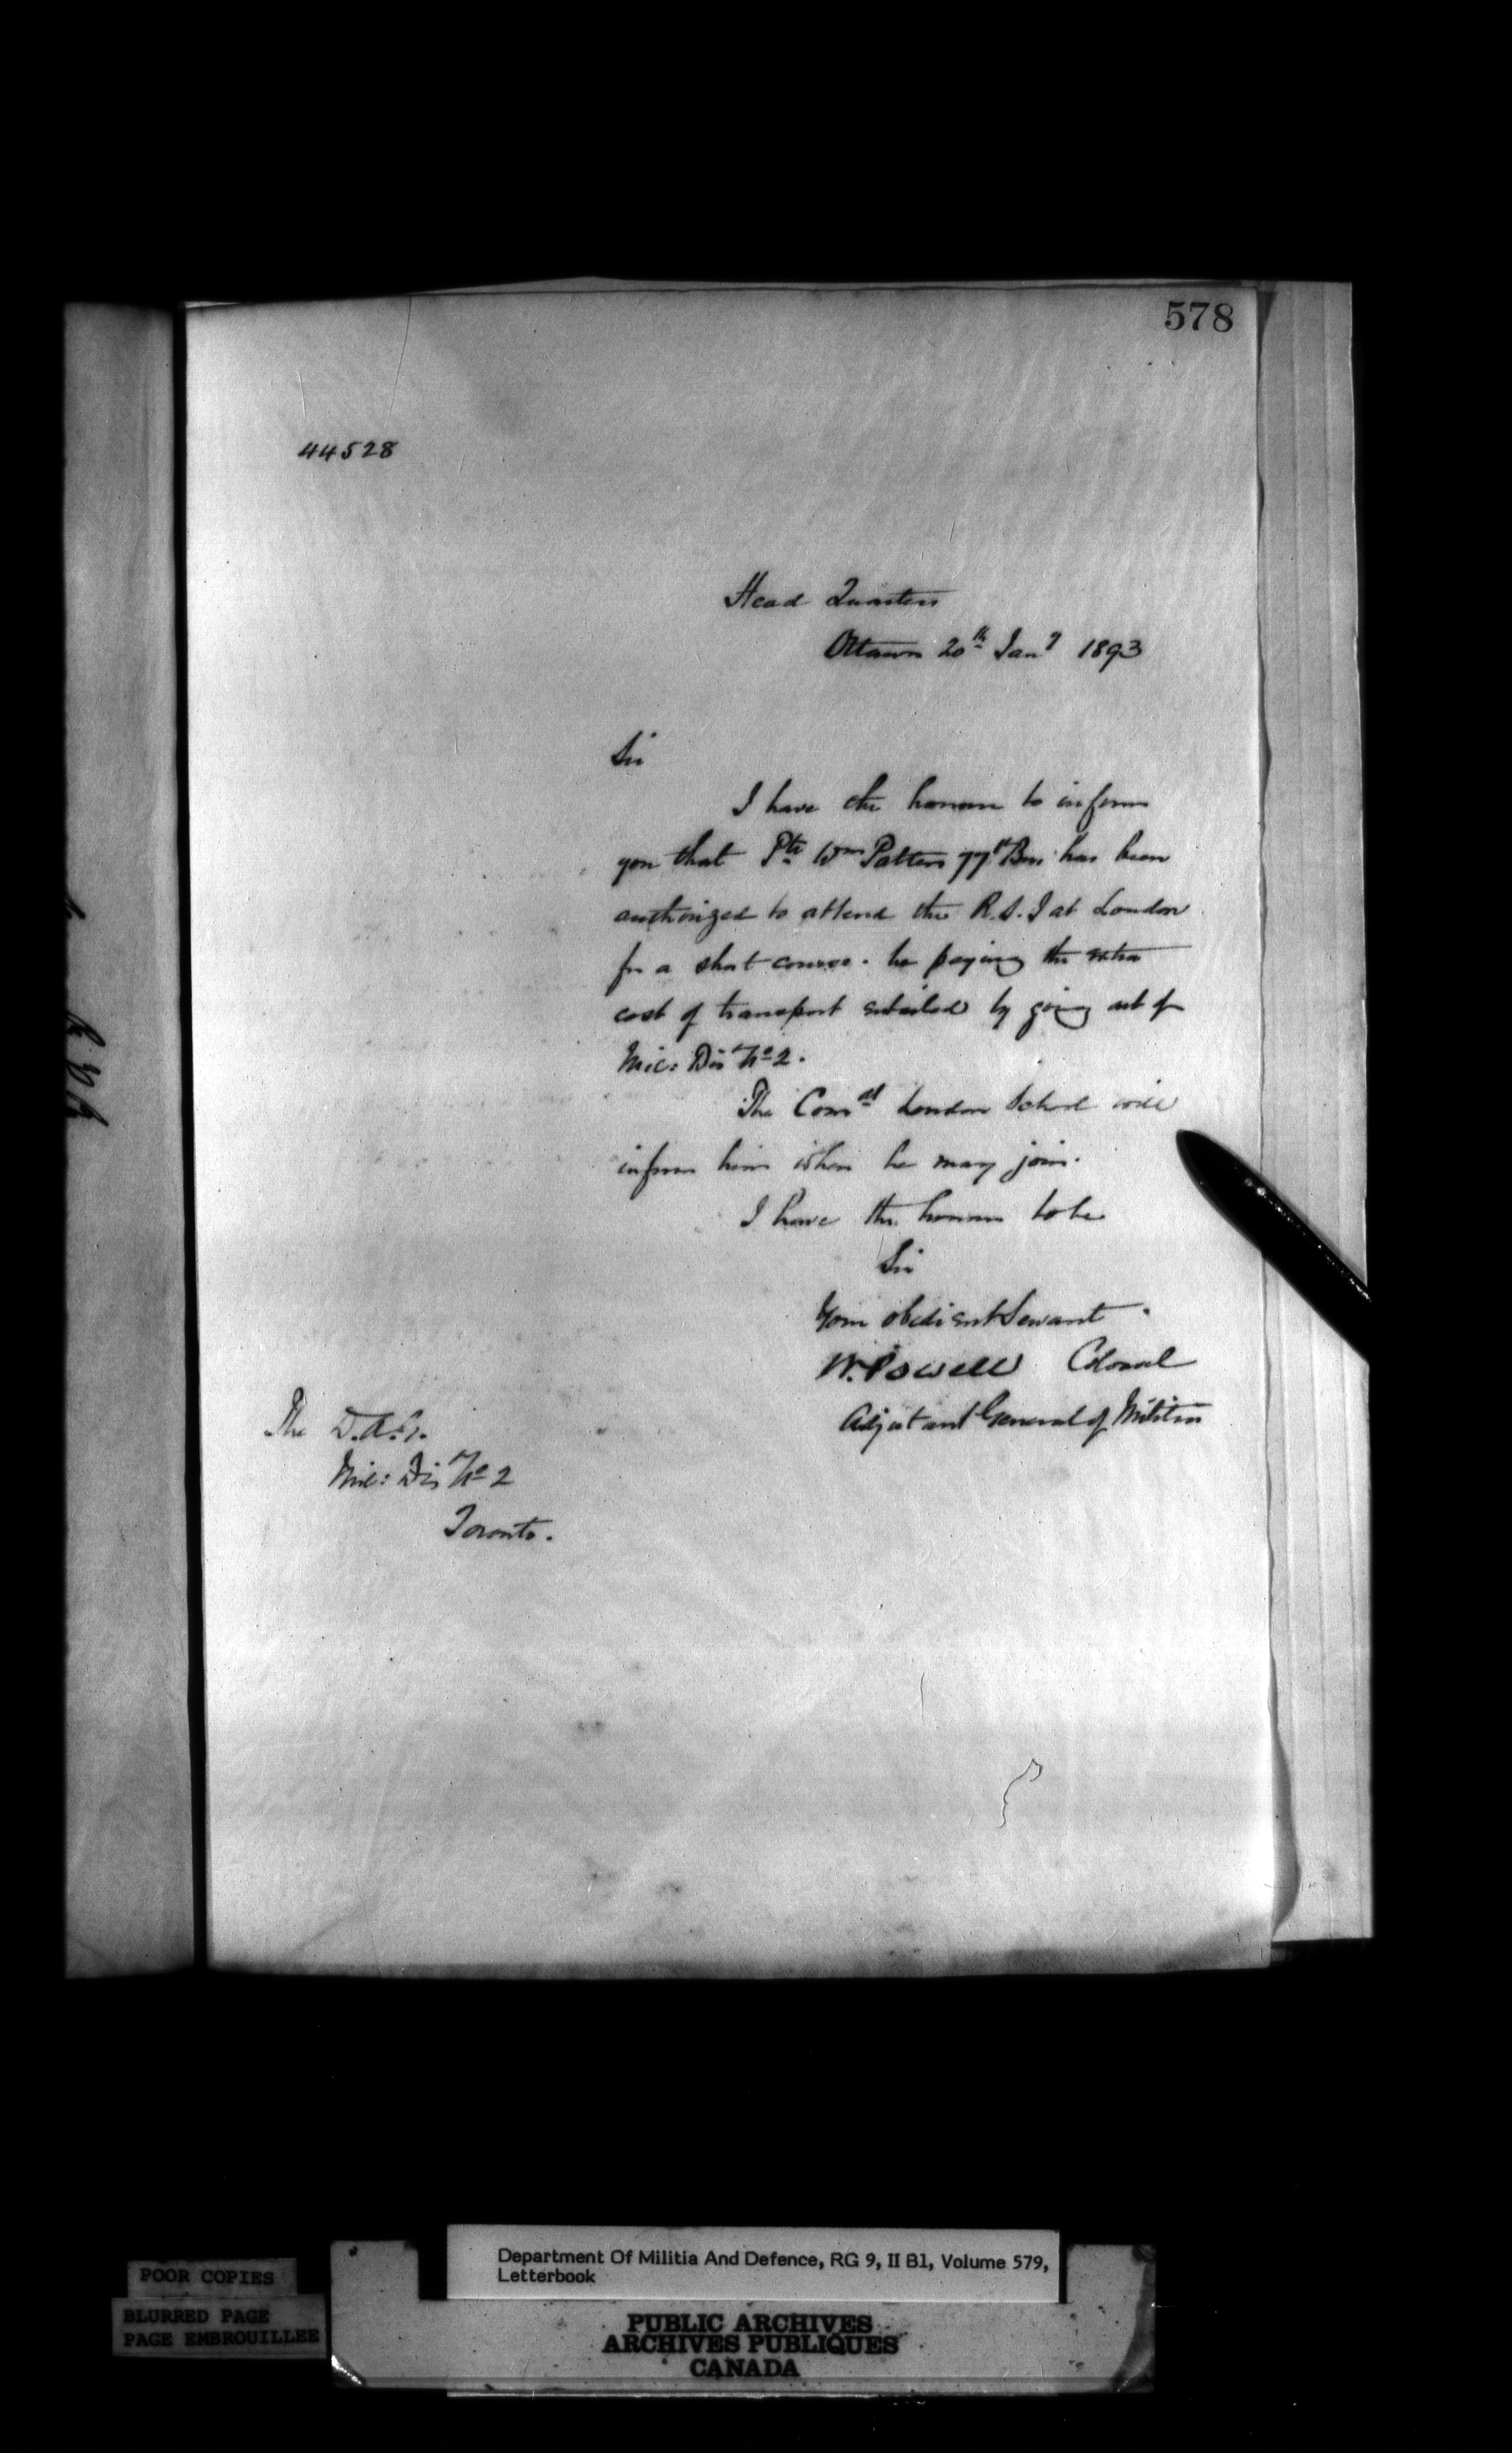 578
44528
Head Quarters
Ottawa 20th Jany 1893
Sir
I have the honour to inform
you that Pte Wm Patten 77th Bn has been
authorized to attend the R.S.I at London
for a short course. he paying the extra
cost of transport entailed by going out of
Mil: Dis No 2.
The Comdt London School will
inform him when he may join.
I have the honour to be
Sir
Your obedient Servant
W. Powell Colonel
Adjutant General of Militia
The D.A.G.
Mil: Dis No 2
Toronto.
Department Of Militia And Defence, RG 9, II B1, Volume 579,
Letterbook
POOR COPIES
BLURRED PAGE
PAGE EMBROUILLEE
PUBLIC ARCHIVES
ARCHIVES PUBLIQUES
CANADA